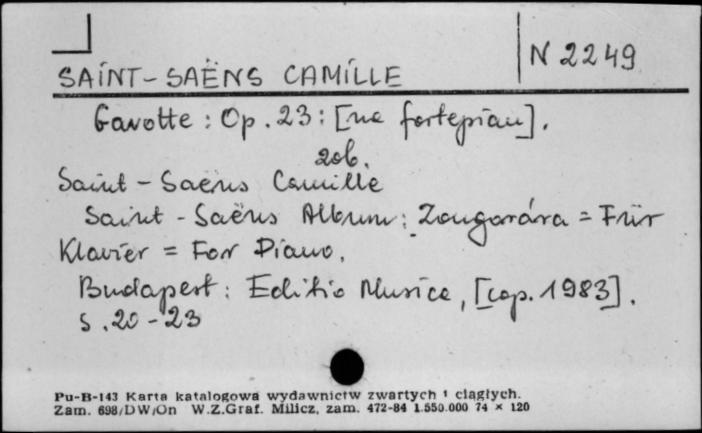 N 2249
SAINT-SAËNS CAMILLE
Gavotte : Op. 23 : [na fortepian].
zob.
Saint-Saëns Camille
Saint-Saëns Album: Zongorára = Für
Klavier = For Piano.
Budapest: Editio Musica, [cop. 1983].
S. 20-23
Pu-B-143 Karta katalogowa wydawnictw zwartych i ciągłych.
Zam. 698/DW/On W.Z.Graf. Milicz, zam. 472-84 1.550.000 74 × 120